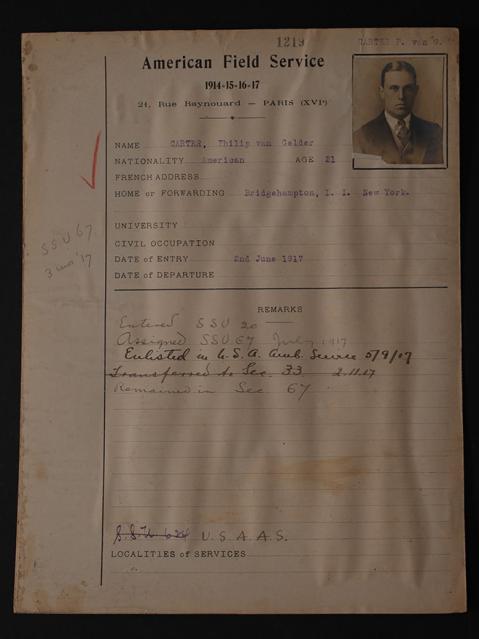 1219
CARTER P. van G.
American Field Service
1914-15-16-17
21, Rue Raynouard — PARIS (XVIe)
NAME CARTER, Philip van Gelder
NATIONALITY American AGE 21
FRENCH ADDRESS
HOME or FORWARDING Bridgehampton, L. I. New York.
UNIVERSITY
CIVIL OCCUPATION
DATE of ENTRY 2nd June 1917
DATE of DEPARTURE
SSU 67
3 mos '17
REMARKS
Entered SSU 20
Assigned SSU 67 July 1917
Enlisted in U.S.A. Amb. Service 5/9/17
Transferred to Sec. 33 2.11.17
Remained in Sec 67
S.S.U. 624 U.S.A.A.S.
LOCALITIES of SERVICES